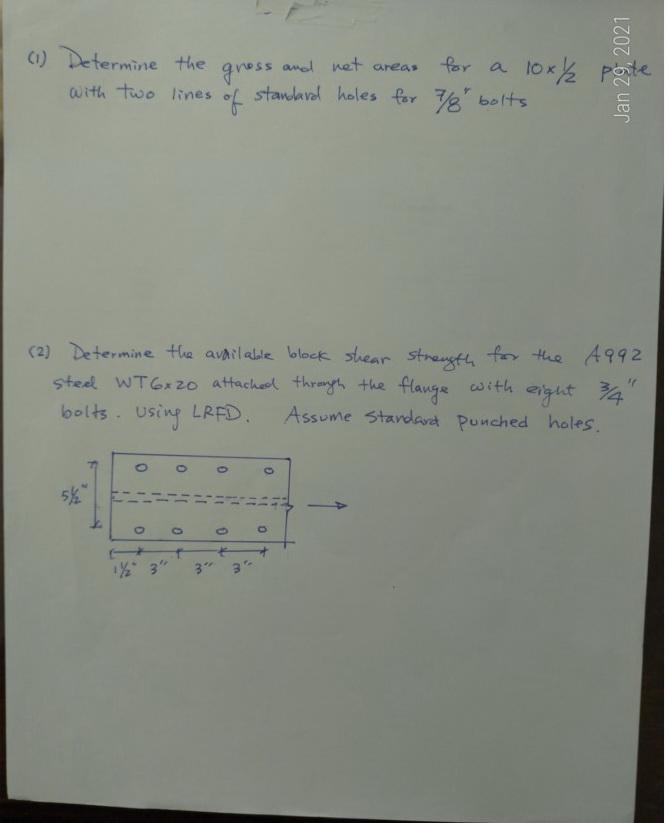 (1) Determine the gross and net areas for a 10 x 1/2 plate
with two lines of standard holes for 7/8" bolts
Jan 29, 2021
(2) Determine the available block shear strength for the A992
steel WT6x20 attached through the flange with eight 3/4"
bolts. Using LRFD. Assume standard punched holes.
5 1/2"
1 1/2" 3" 3" 3"